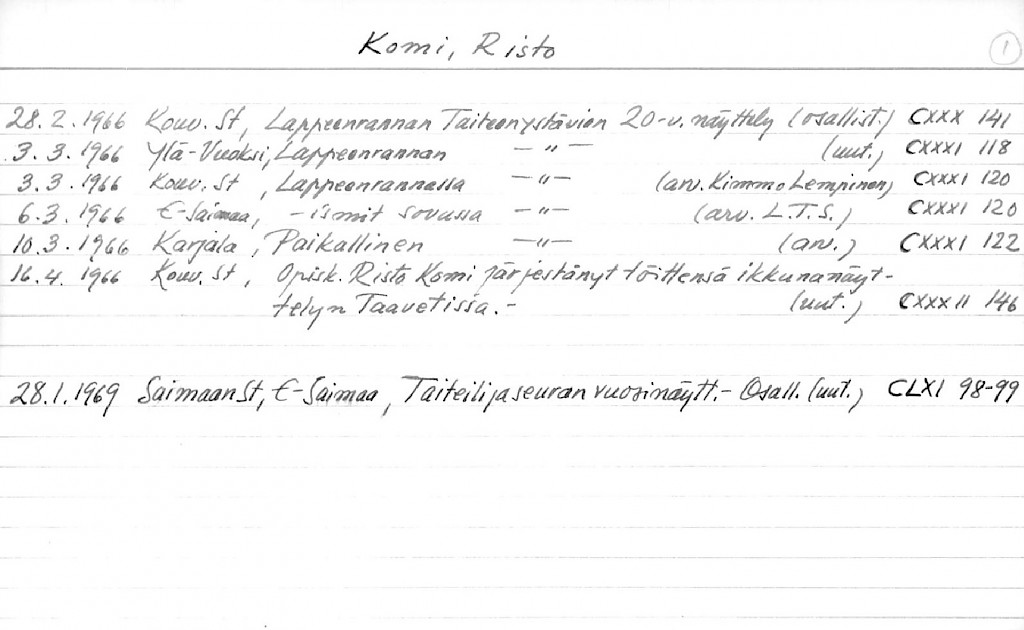 Komi, Risto 1
28.2.1966 Kouv. St, Lappeenrannan Taiteenystävien 20-v. näyttely (osallist.) CXXX 141
3.3.1966 Ylä-Vuoksi, Lappeenrannan —"— (uut.) CXXXI 118
3.3.1966 Kouv. St, Lappeenrannassa —"— (arv. Kimmo Lempinen) CXXXI 120
6.3.1966 E-Saimaa, -ismit sovussa —"— (arv. L.T.S.) CXXXI 120
10.3.1966 Karjala, Paikallinen —"— (arv.) CXXXI 122
16.4.1966 Kouv. St, Opisk. Risto Komi järjestänyt töittensä ikkunanäyt-
telyn Taavetissa.- (uut.) CXXXII 146
28.1.1969 Saimaan St, E-Saimaa, Taiteilijaseuran vuosinäytt.- Osall. (uut.) CLXI 98-99